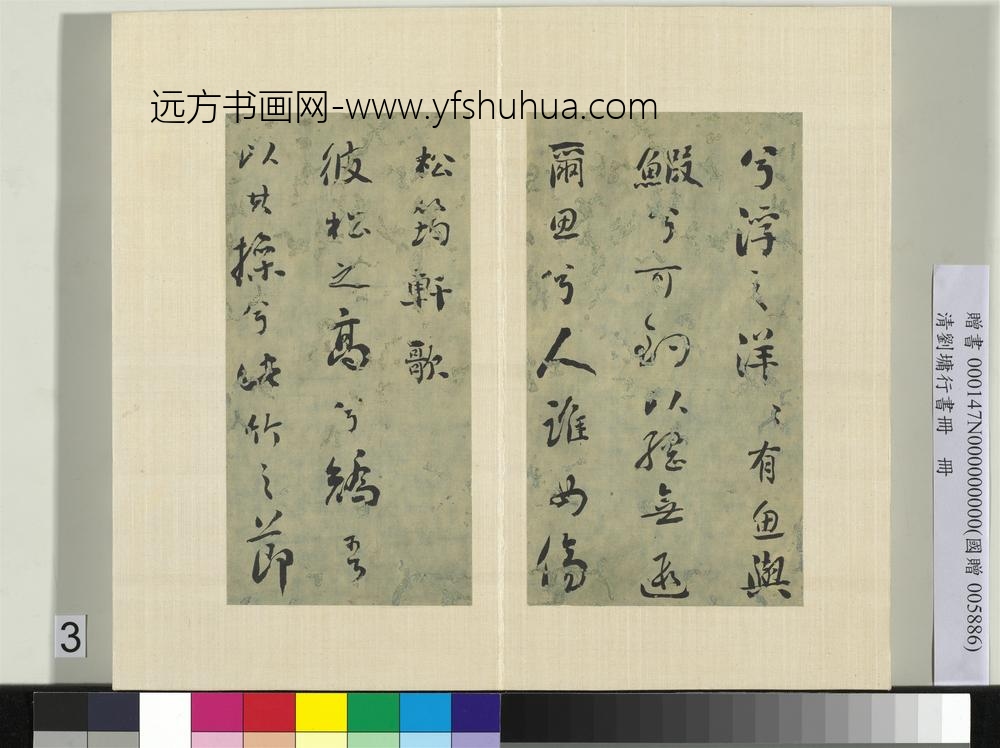 远方书画网-www.yfshuhua.com
兮浮之洋〻有魚與
鰕兮可釣以綸無遐
爾思兮人誰女傷
松筠軒歌
彼松之高兮矯吾
以其操兮皎竹之節
贈書 000147N000000000(國贈 005886)
清劉墉行書冊 冊
3